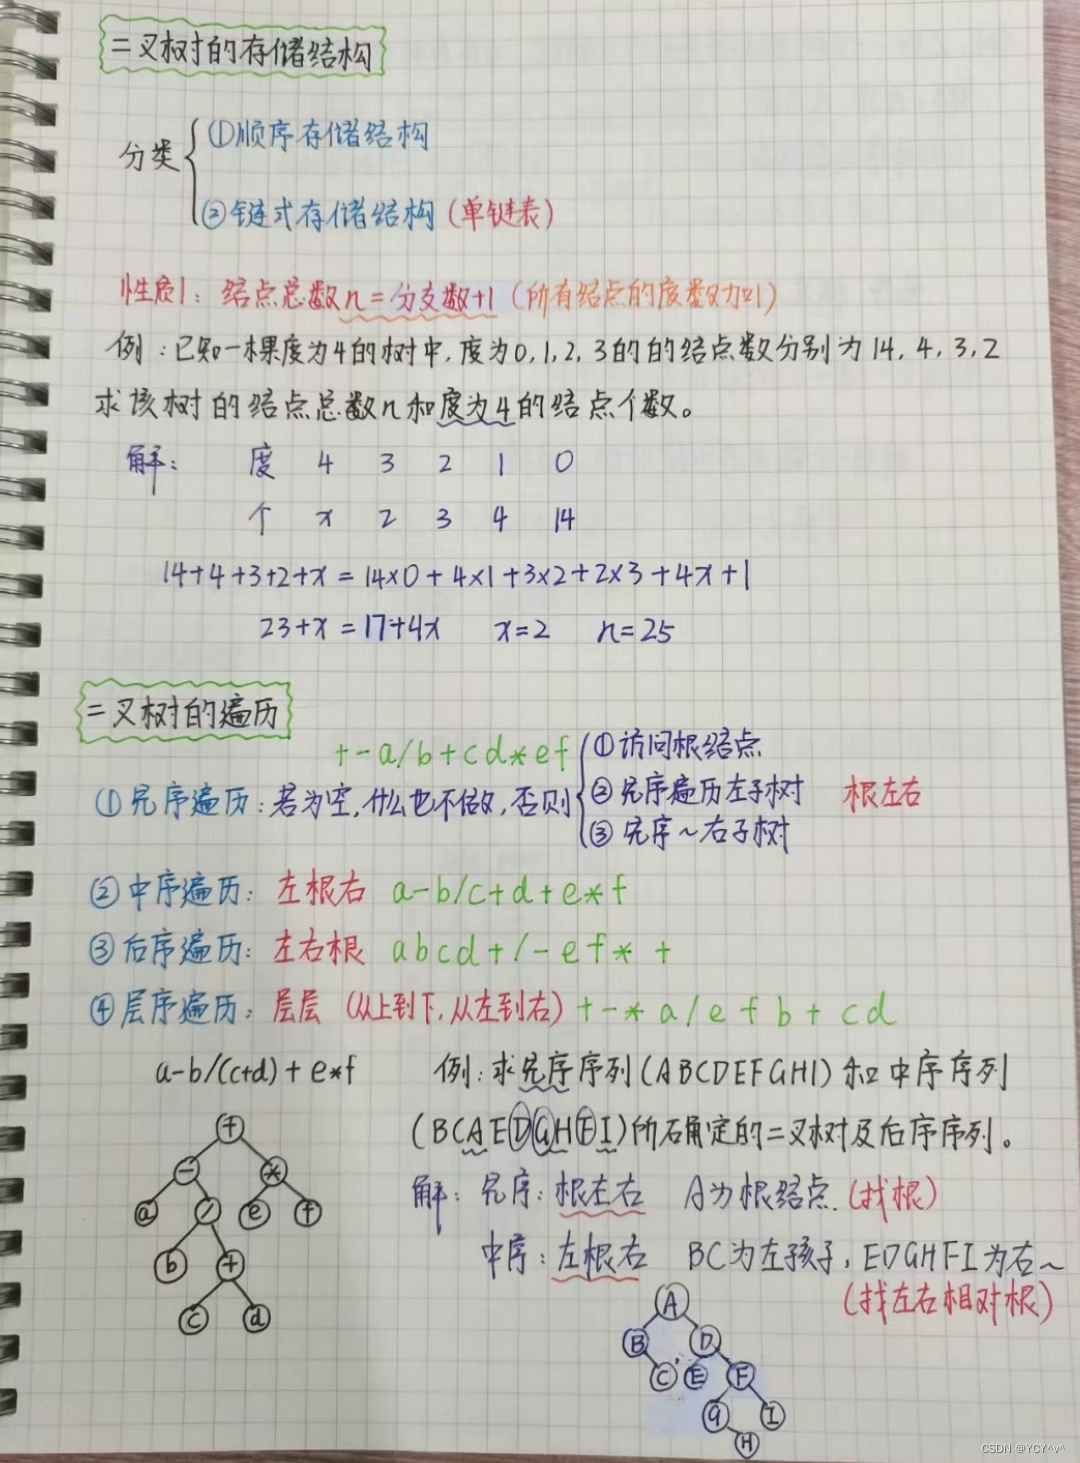 二叉树的存储结构
分类
①顺序存储结构
②链式存储结构(单链表)
性质1：结点总数n=分支数+1(所有结点的度数加1)
例：已知一棵度为4的树中,度为0,1,2,3的的结点数分别为14,4,3,2
求该树的结点总数n和度为4的结点个数。
解： 度 4 3 2 1 0
个 x 2 3 4 14
14+4+3+2+x=14×0+4×1+3×2+2×3+4x+1
23+x=17+4x x=2 n=25
二叉树的遍历
+-a/b+cd*ef
①先序遍历：若为空,什么也不做,否则
①访问根结点
②先序遍历左子树
③先序~右子树
根左右
②中序遍历：左根右 a-b/c+d+e*f
③后序遍历：左右根 abcd+/-ef*+
④层序遍历：层层(从上到下,从左到右)+-*a/efb+cd
a-b/(c+d)+e*f
+
- *
a / e f
b +
c d
例：求先序序列(ABCDEFGHI)和中序序列
(BCAEDGHFI)所确定的二叉树及后序序列。
解：先序：根左右 A为根结点.(找根)
中序：左根右 BC为左孩子,EDGHFI为右~
(找左右相对根)
A
B D
C E F
G I
H
CSDN @YCY^v^